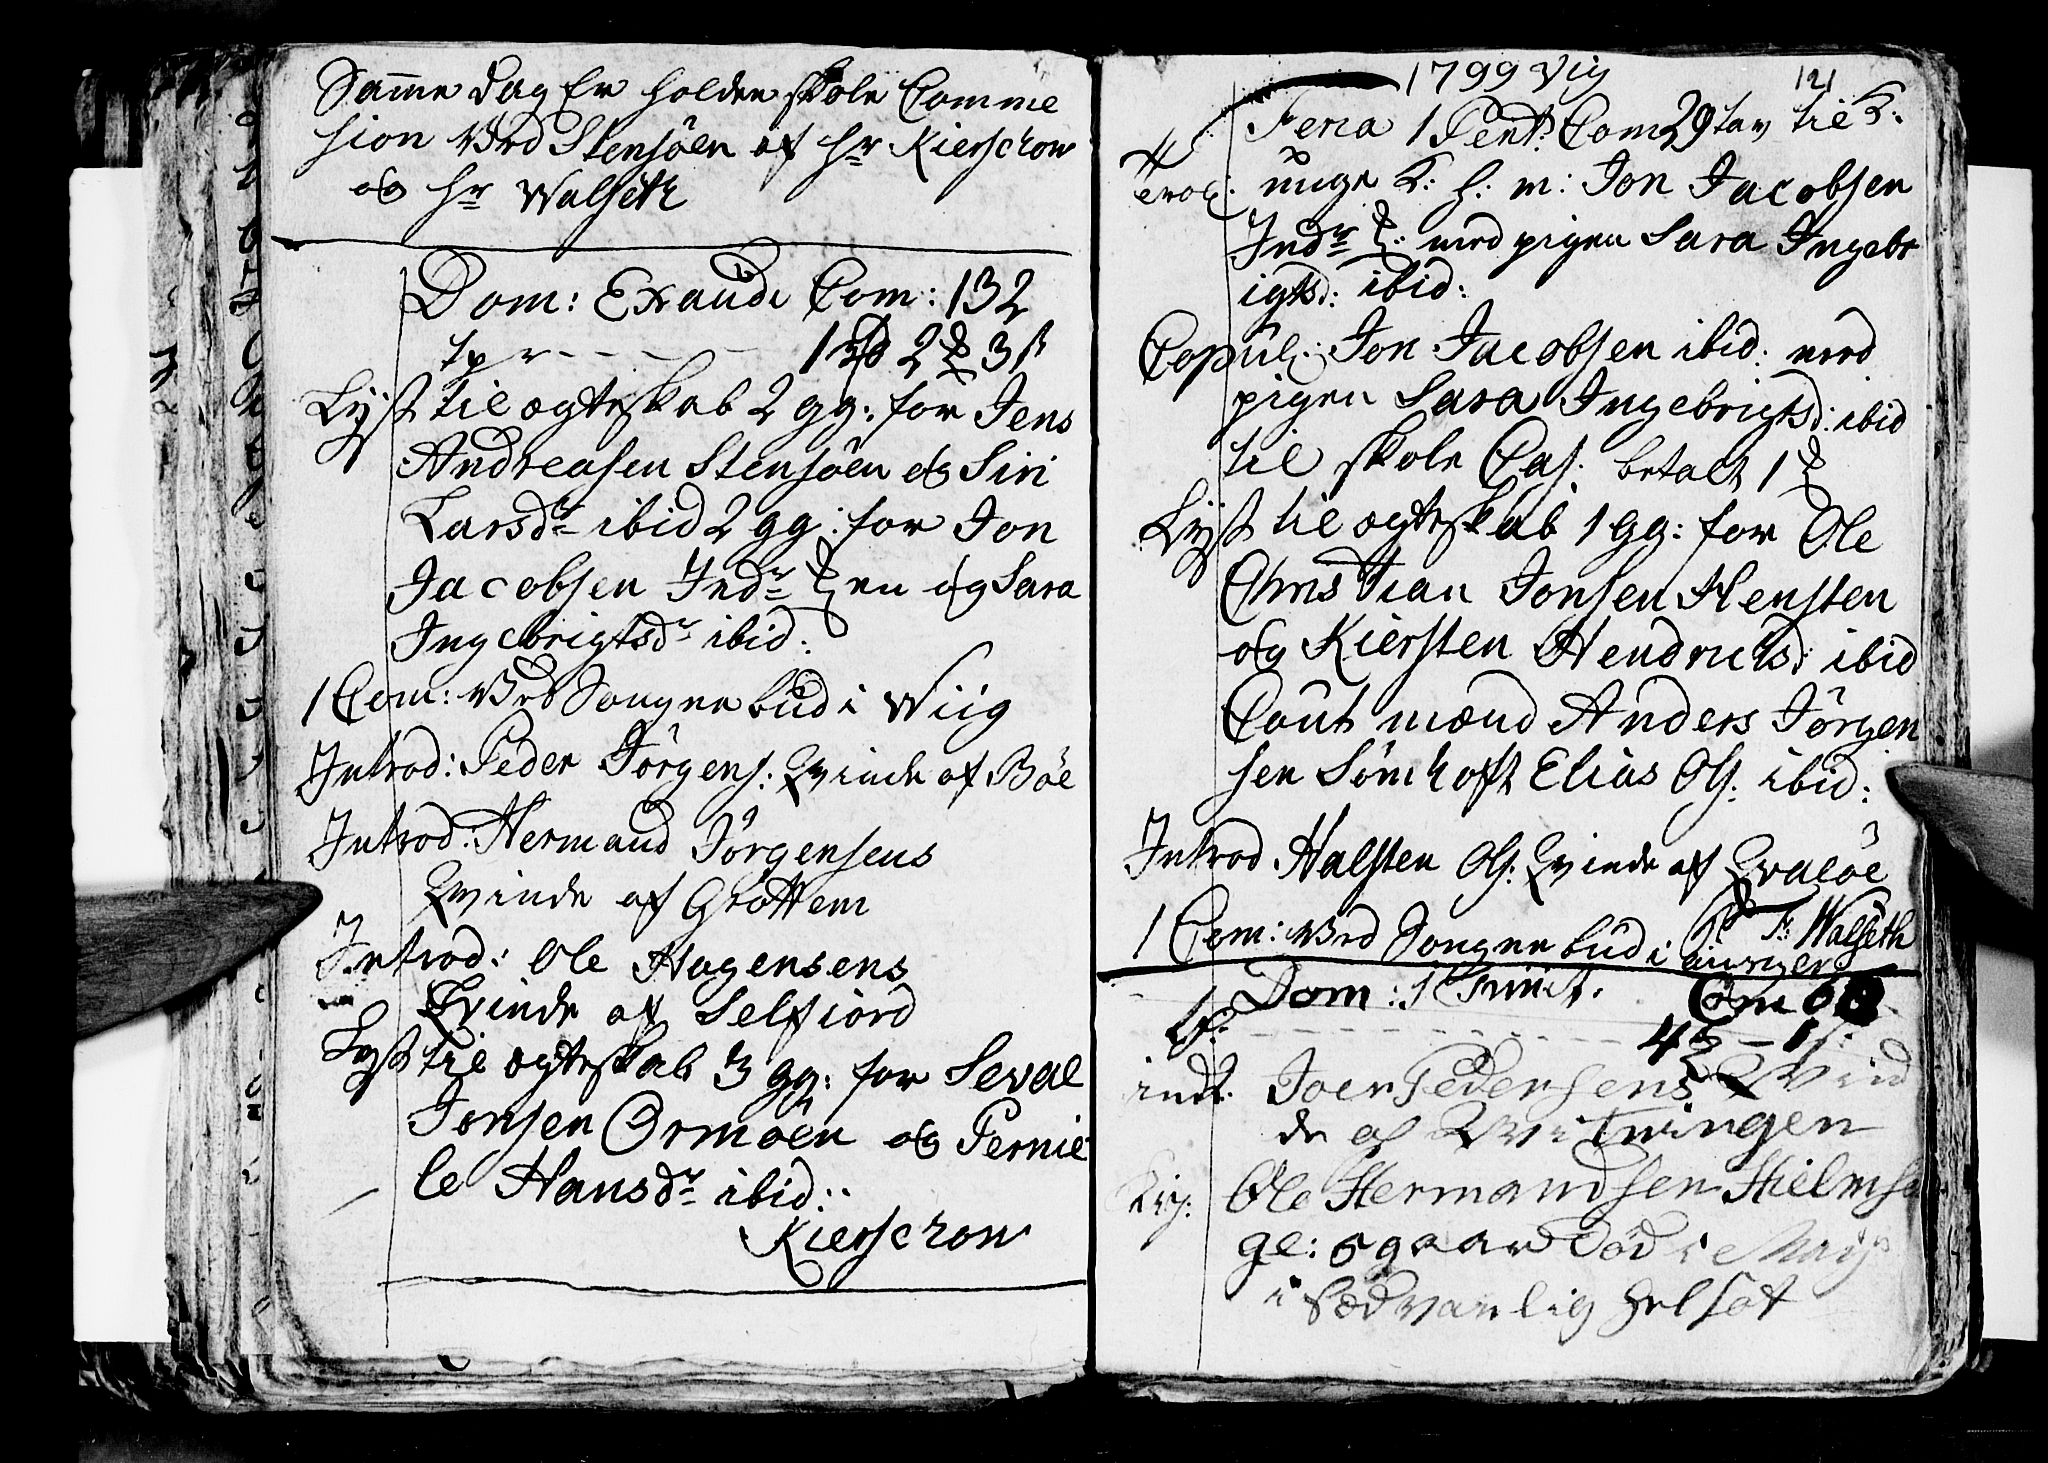 Samme Dag Er holden skole Comme
sion Ved Stensöen af Hr Kierschow
og Hr Walseth
Dom: Exaudi Com: 132
tpr - - - - 1 rd 2 3 s
Lyst til ægteskab 2 gg: for Jens
Andreasen Stensöen og Siri
Larsdr ibid 2 gg: for Jon
Jacobsen Indr en og Sara
Ingebrigtsdr ibid:
1 Com: Ved Songnebud i Wiig
Introd: Peder Jörgens: Qvinde af Böe
Introd: Hermand Jörgensens
Qvinde af Grottem
Introd: Ole Hagensens
Qvinde af Selfiord
Lyst til ægteskab 3 gg: for Seval
Jonsen Ormöen og Pernil
le Hansdr ibid:
Kierschow
1799 Vig 121
Feria 1 Pent: Com 29 tav til K:
Trol: unge K: h: m: Jon Jacobsen
Indr : med pigen Sara Ingebr
igtsd: ibid:
Copul: Jon Jacobsen ibid: med
pigen Sara Ingebrigtsd: ibid
til skole Cas: betalt 1
Lyst til ægteskab 1 gg: for Ole
Christian Jonsen Hensten
og Kiersten Hendrichsd: ibid
Caut mænd Anders Jörgen
sen Sömhofft Elias Ols: ibid:
Introd Halsten Ols: Qvinde af Qvalöe
1 Com: Ved Songnebud i T: Walseth
Dom: 1 Trinit. Com 6
tf: - - - - 4 - 1 s:
indt. Joen Pedersens Qvin
de af Qvitningen
Kirg: Ole Hermandsen Hielmsø
gl: 5 gaar död i May
i sædvanlig helsot